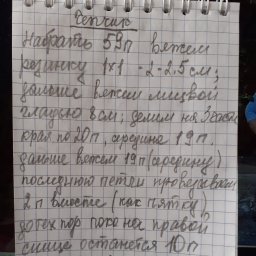 Чепчик
Набрать 59п вяжем
резинку 1х1 -2-2.5см,
дальше вяжем лицевой
гладью 8см; делим на 3 части
края по 20п, середина 19п.
дальше вяжем 19п (середину)
последнюю петлю провязываем
2п вместе (как пятку)
до тех пор пока на правой
спице останется 10п